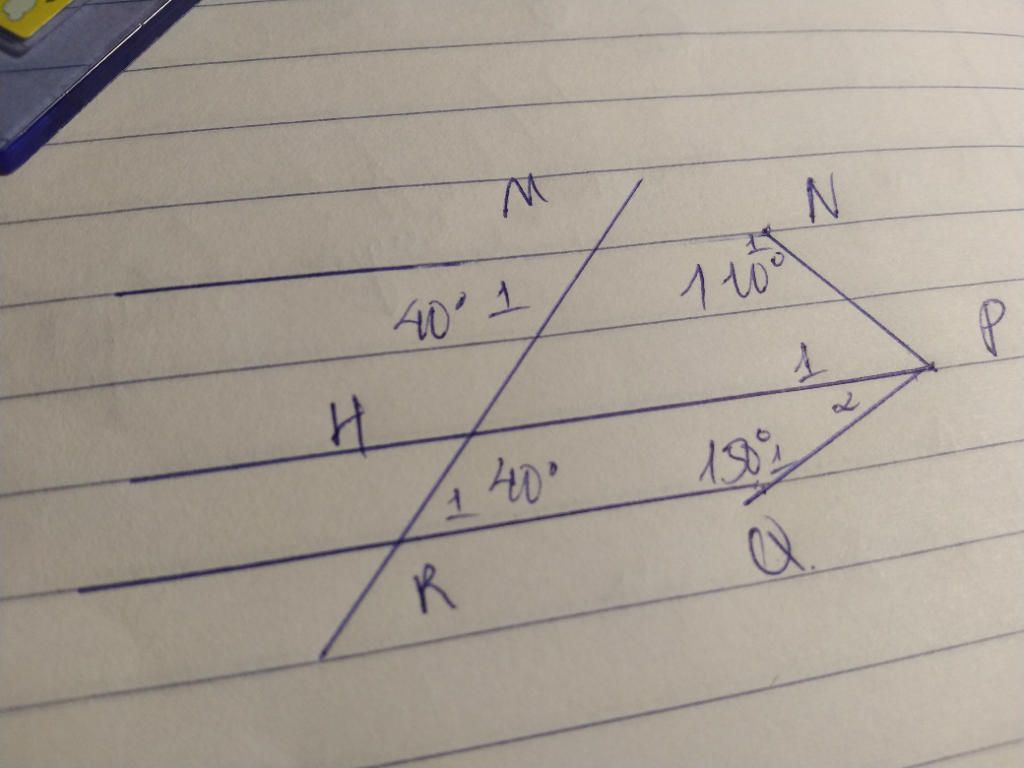 M N
1
40° 1 110°
P
1
H 2
1 40° 130° 1
R Q.